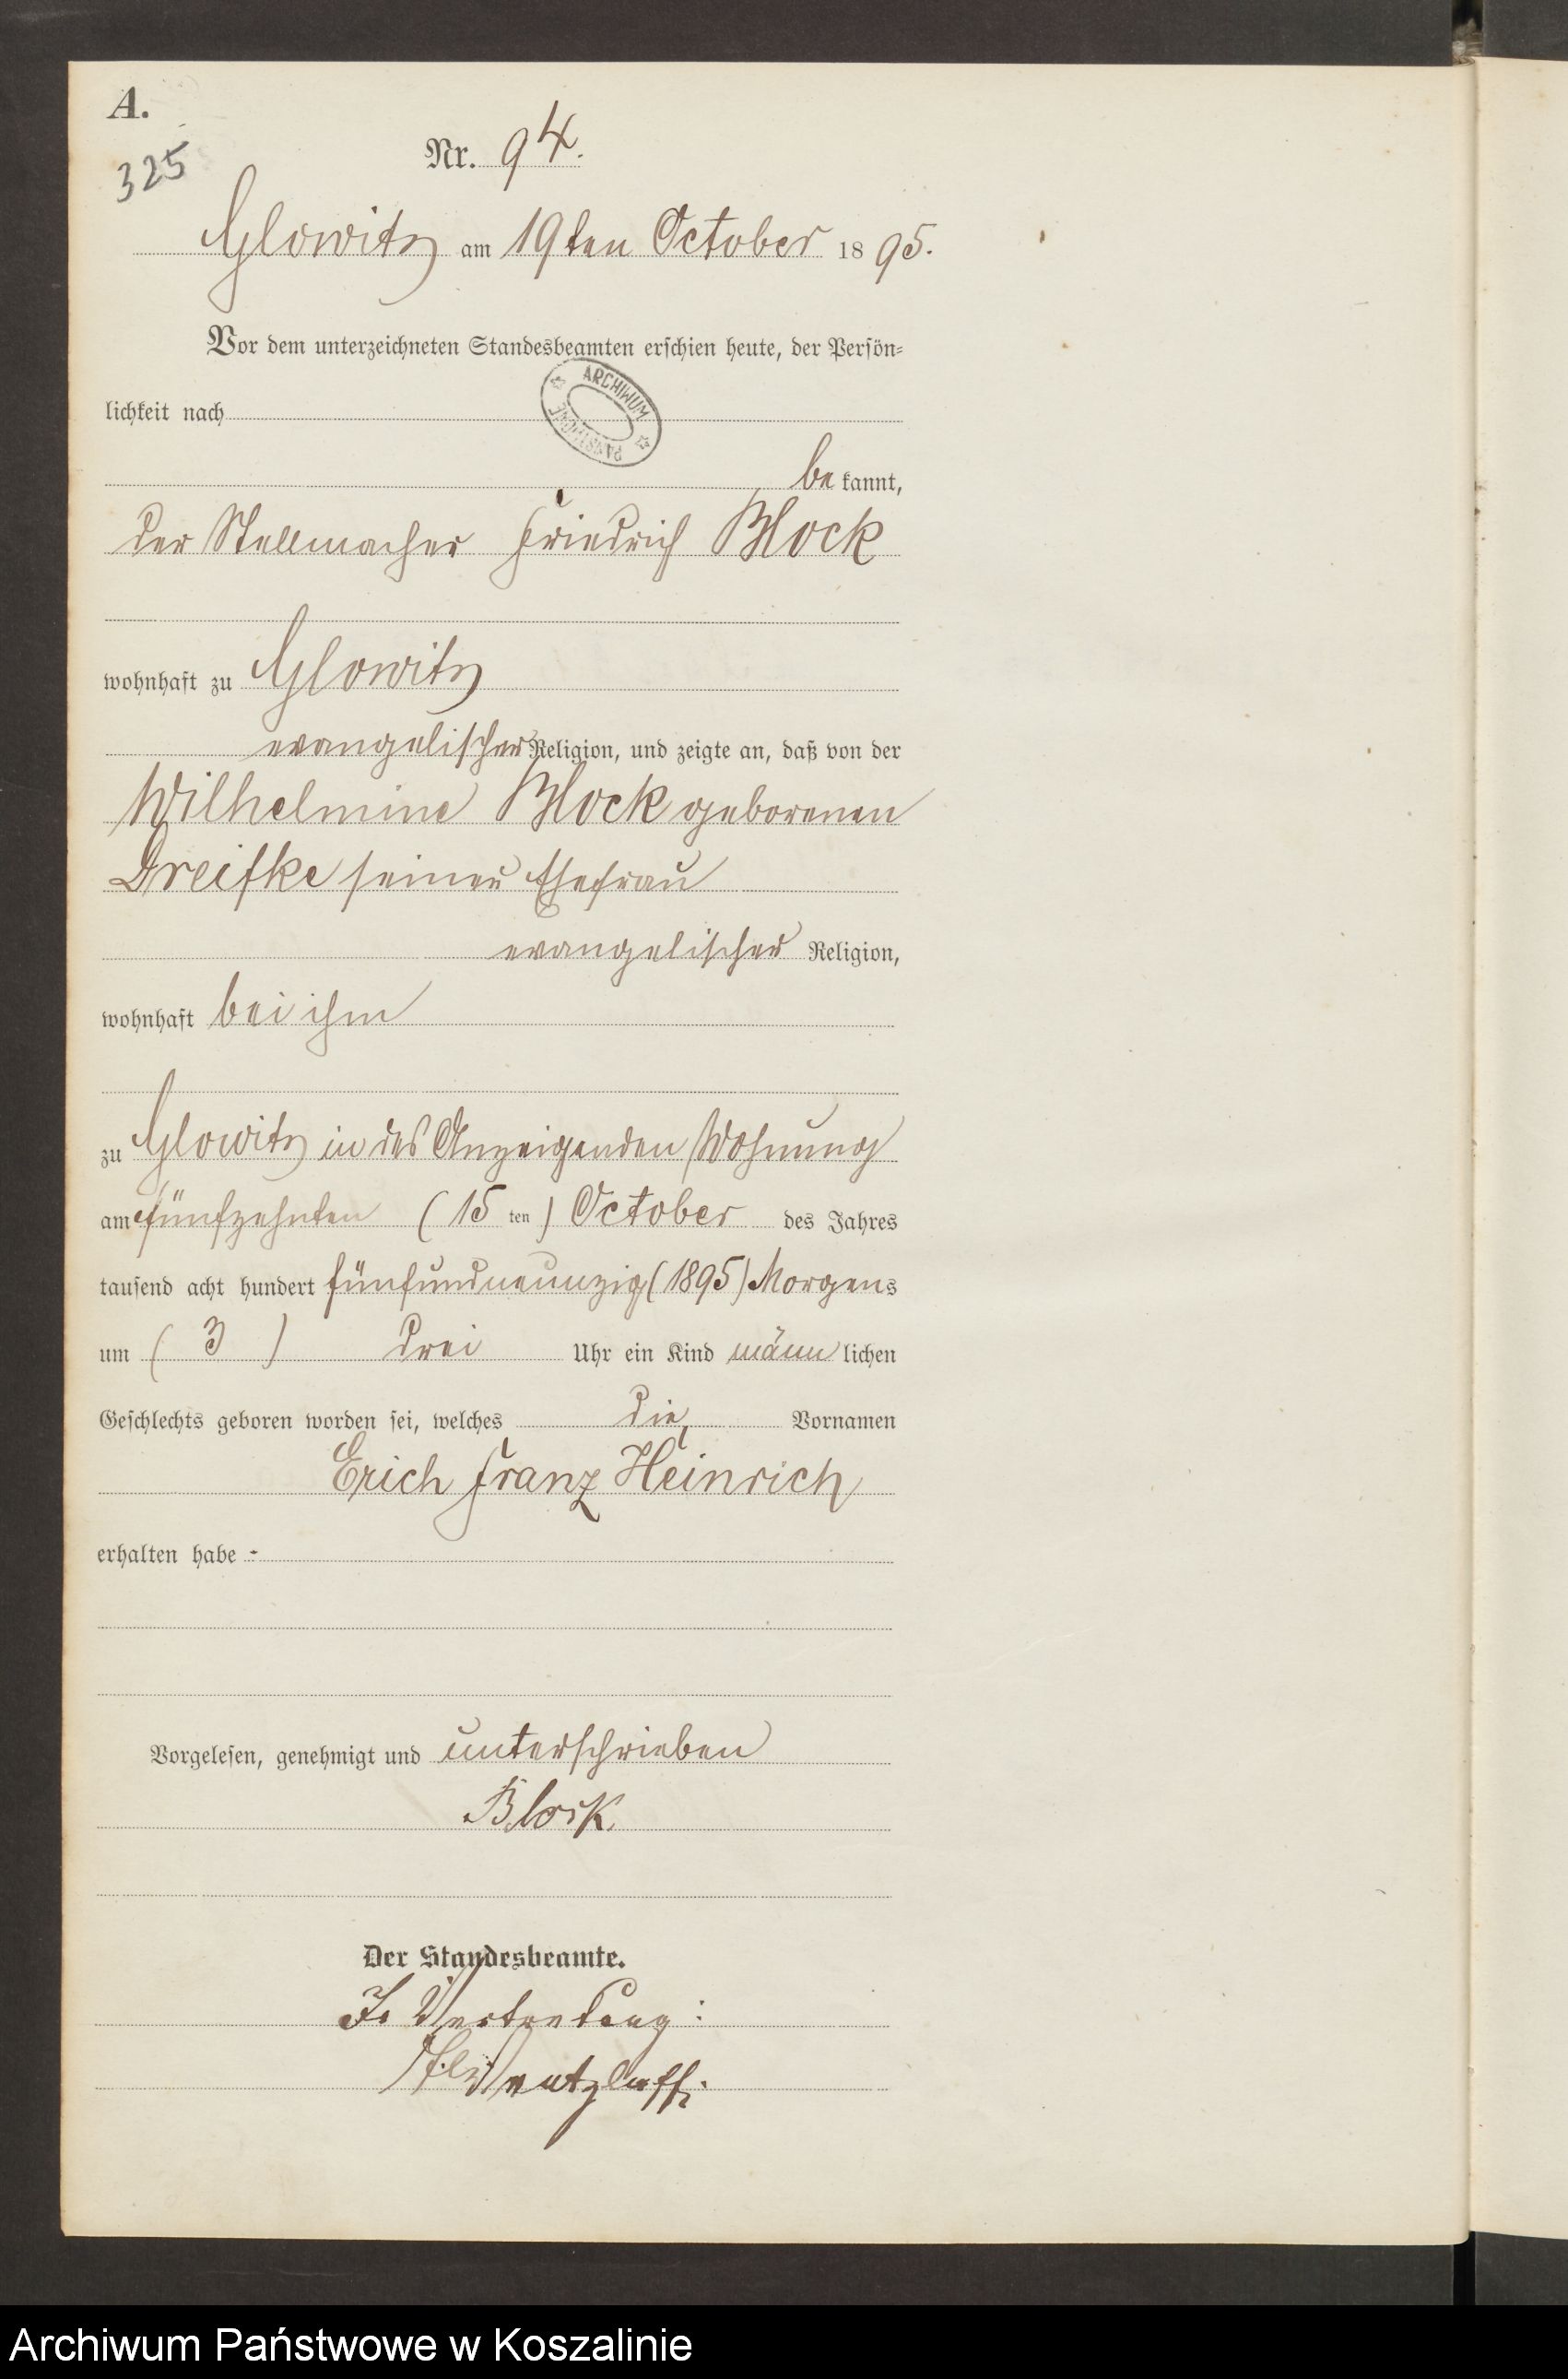 A.
325
Nr. 94.
Glowitz am 19ten October 1895.
Vor dem unterzeichneten Standesbeamten erschien heute, der Persön-
lichkeit nach
ARCHIWUM PAŃSTWOWE
be kannt,
der Stellmacher Friedrich Block
wohnhaft zu Glowitz
evangelischer Religion, und zeigte an, daß von der
Wilhelmine Block geborenen
Dreifke seiner Ehefrau
evangelischer Religion,
wohnhaft bei ihm
zu Glowitz in des Anzeigenden Wohnung
am fünfzehnten (15 ten) October des Jahres
tausend acht hundert fünfundneunzig (1895) Morgens
um ( 3 ) drei Uhr ein Kind männ lichen
Geschlechts geboren worden sei, welches die Vornamen
Erich Franz Heinrich
erhalten habe -
Vorgelesen, genehmigt und unterschrieben
Block
Der Standesbeamte.
In Vertretung:
Archiwum Państwowe w Koszalinie